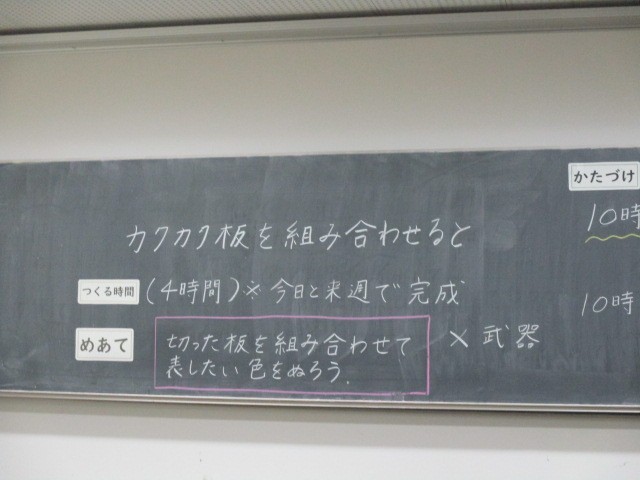 かたづけ
10時
カクカク板を組み合わせると
つくる時間 (4時間)※今日と来週で完成
10時
めあて 切った板を組み合わせて
表したい色をぬろう.
×武器